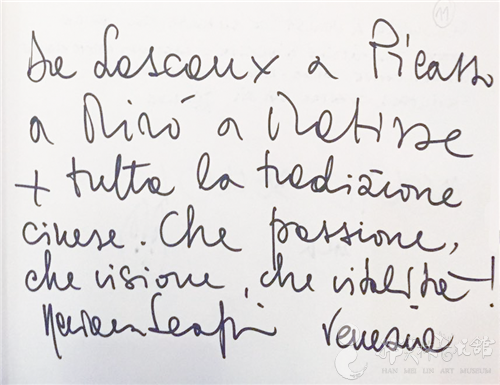 Da Lascaux a Picasso
a Mirò a Matisse
+ tutta la tradizione
cinese. Che passione,
che visione, che vitalità!
Venezia
HAN MEI LIN ART MUSEUM